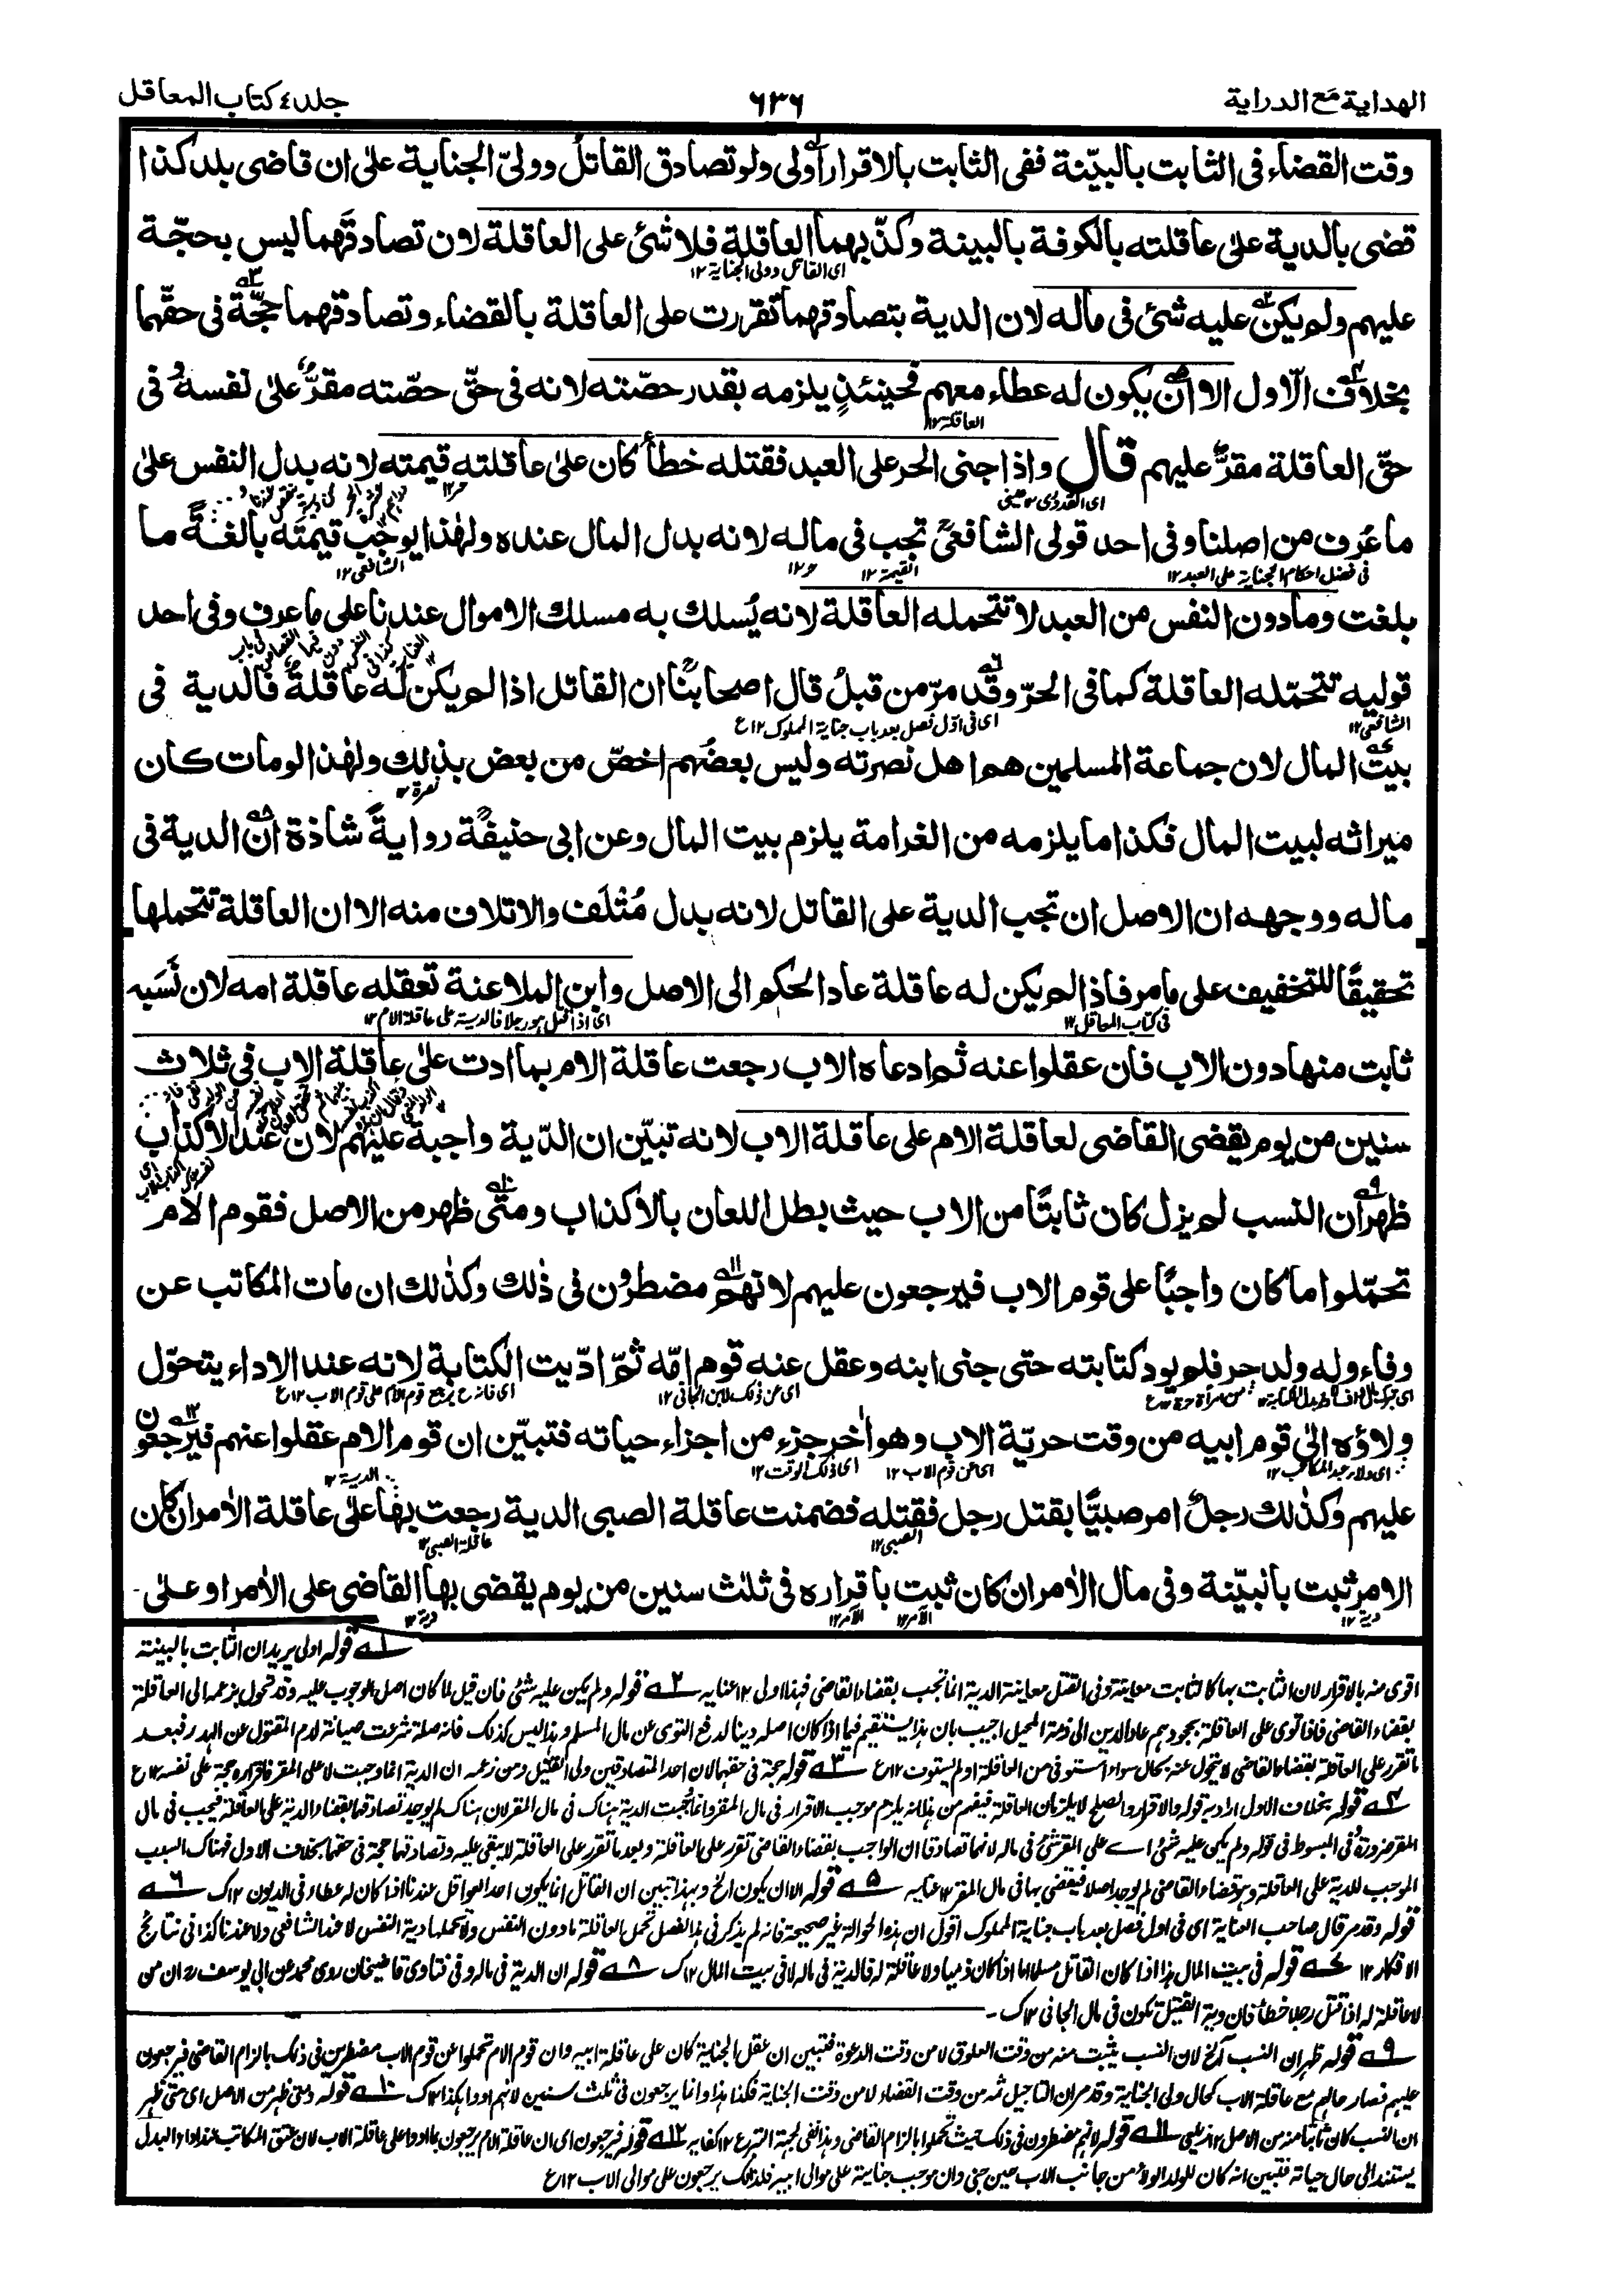 الهداية مع الدراية
٦٣٦
جلد ٤ كتاب المعاقل
وقت القضاء فى الثابت بالبيّنة ففى الثابت بالاقرار اولى ولو تصادق القاتل وولىّ الجناية على ان قاضى بلد كذا
قضى بالدية على عاقلته بالكوفة بالبينة وكذّبهما العاقلة فلا شئ على العاقلة لان تصادقهما ليس بحجّة
اى القاتل وولى الجناية ١٢
عليهم ولم يكن عليه شئ فى ماله لان الدية بتصادقهما تقررت على العاقلة بالقضاء وتصادقهما حجّة فى حقّهما
بخلاف الاول الا ان يكون له عطاء معهم فحينئذٍ يلزمه بقدر حصّته لانه فى حقّ حصّته مقرٌّ على نفسه وفى
العاقلة ١٢
حقّ العاقلة مقرٌّ عليهم قال واذا جنى الحر على العبد فقتله خطأً كان على عاقلته قيمته لانه بدل النفس على
اى القدورى ١٢ عينى
ما عُرف من اصلنا وفى احد قولى الشافعىؒ تجب فى ماله لانه بدل المال عنده ولهٰذا يوجب قيمتَه بالغةً ما
فى فصل احكام الجناية على العبد ١٢
القيمة ١٢
الشافعى ١٢
بلغت وما دون النفس من العبد لا تتحمله العاقلة لانه يُسلك به مسلك الاموال عندنا على ما عرف وفى احد
قوليه تتحمّله العاقلة كما فى الحرّ وقد مرّ من قبلُ قال اصحابناؒ ان القاتل اذا لم يكن له عاقلةٌ فالدية فى
الشافعى ١٢
اى فى اوّل فصل بعد باب جناية المملوك ١٢ع
بيت المال لان جماعة المسلمين هم اهل نصرته وليس بعضُهم اخصّ من بعض بذٰلك ولهٰذا لو مات كان
نصرة ١٢
ميراثه لبيت المال فكذا ما يلزمه من الغرامة يلزم بيت المال وعن ابى حنيفةؒ روايةً شاذة انّ الدية فى
ماله ووجهه ان الاصل ان تجب الدية على القاتل لانه بدل مُتْلَف والاتلاف منه الا ان العاقلة تتحملها
تحقيقًا للتخفيف على ما مر فاذا لم يكن له عاقلة عاد الحكم الى الاصل وابن الملاعنة تعقله عاقلة امه لان نَسَبه
فى كتاب المعاقل ١٢
اى اذا قتل هو رجلا فالدية على عاقلة الام ١٢
ثابت منها دون الاب فان عقلوا عنه ثم ادعاه الاب رجعت عاقلة الام بما ادت على عاقلة الاب فى ثلاث
سنين من يوم يقضى القاضى لعاقلة الام على عاقلة الاب لانه تبيّن ان الدّية واجبة عليهم لان عند الاكذاب
ظهر ان النسب لم يزل كان ثابتًا من الاب حيث بطل اللعان بالاكذاب ومتى ظهر من الاصل فقوم الام
تحمّلوا ما كان واجبًا على قوم الاب فيرجعون عليهم لانهم مضطرون فى ذٰلك وكذٰلك ان مات المكاتب عن
وفاء وله ولد حر فلم يود كتابته حتى جنى ابنه وعقل عنه قوم امّه ثمّ ادّيت الكتابة لانه عند الاداء يتحوّل
اى عن ذلك الابن الجانى ١٢
اى فانه يرجع قوم الام على قوم الاب ١٢ع
ولاؤه الى قوم ابيه من وقت حريّة الاب وهو اٰخر جزء من اجزاء حياته فتبيّن ان قوم الام عقلوا عنهم فيرجعون
اى عن قوم الاب ١٢
اى ذلك الوقت ١٢
الدية ١٢
عليهم وكذٰلك رجلٌ امر صبيًّا بقتل رجل فقتله فضمنت عاقلة الصبى الدية رجعت بها على عاقلة الاٰمر ان كان
الصبى ١٢
عاقلة الصبى ١٢
الامر ثبت بالبيّنة وفى مال الاٰمر ان كان ثبت باقراره فى ثلٰث سنين من يوم يقضى بها القاضى على الاٰمر او على
دية ١٢
الآمر ١٢
الآمر ١٢
دية ١٢
١ـه قوله اولى يريد ان الثابت بالبينة
اقوى منه بالاقرار لان الثابت بها كالثابت معاينة وفى القتل معاينة الدية انما تجب بقضاء القاضى فهذا اولى ١٢ عنايه ٢ـه قوله ولم يكن عليه شئ فان قيل لما كان اصل الوجوب عليه وقد تحول بزعمه الى العاقلة
بقضاء القاضى فاذا توى على العاقلة بجحودهم عاد الدين الى ذمة المحيل اجيب بان هذا يستقيم فيما اذا كان اصله دينا لدفع التوى عن مال المسلم وهذا ليس كذلك فانه صلة شرعت صيانة لدم المقتول عن الهدر فبعد
ما تقرر على العاقلة بقضاء القاضى لا يتحول عنه بحال سواء استوفى من العاقلة او لم يستوف ١٢ع ٣ـه قوله حجة فى حقهما لان احد المتصادقين ولى القتيل ومن زعمه ان الدية انما وجبت لا على المقر فاقراره حجة على نفسه ١٢ع
٤ـه قوله بخلاف الاول اراد به قوله والاقرار والصلح لا يلزمان العاقلة فيفهم من هذا انه يلزم موجب الاقرار فى مال المقر وانما تجبت الدية هناك فى مال المقر لان هناك لم يوجد تصادقهما بقضاء الدية على العاقلة فيجب فى مال
المقر ضرورة وفى المبسوط فى قوله ولم يكن عليه شئ اے على المقر شئ فى ماله لانهما تصادقا ان الواجب بقضاء القاضى تقرر على العاقلة وبعد ما تقرر على العاقلة لا يبقى عليه وتصادقهما حجة فى حقهما بخلاف الاول فهناك السبب
الموجب للدية على العاقلة وهو قضاء القاضى لم يوجد اصلا فيقضى بها فى مال المقر ١٢ عنايه ٥ـه قوله الا ان يكون الخ وبهذا تبين ان القاتل انما يكون احد العواقل عندنا اذا كان له عطاء فى الديون ١٢ك ٦ـه
قوله وقد مر قال صاحب العناية اى فى اول فصل بعد باب جناية المملوك اقول ان هذه الحوالة غير صحيحة فانه لم يذكر فى هذا الفصل تحمل العاقلة ما دون النفس ولا تحملها دية النفس لا عند الشافعى ولا عندنا كذا فى نتائج
الافكار ١٢ ٧ـه قوله فى بيت المال هذا اذا كان القاتل مسلما اما اذا كان ذميا ولا عاقلة له فالدية فى ماله لا فى بيت المال ١٢ك ٨ـه قوله ان الدية فى ماله وفى فتاوى قاضيخان روى محمد عن ابى يوسف رہ ان من
لا عاقلة له اذا قتل رجلا خطأ فان دية القتيل تكون فى مال الجانى ١٢ك
٩ـه قوله ظهر ان النسب الخ لان النسب يثبت منه من وقت العلوق لا من وقت الدعوة فتبين ان عقل الجناية كان على عاقلة ابيه وان قوم الام تحملوا عن قوم الاب مضطرين فى ذلك بالزام القاضى فيرجعون
عليهم فصار حالهم مع عاقلة الاب كحال ولى الجناية وقد مر ان التاجيل ثمه من وقت القضاء لا من وقت الجناية فكذا هذا وانما يرجعون فى ثلث سنين لانهم ادوا هكذا ١٢ك ١٠ـه قوله ومتى ظهر من الاصل اى متى ظهر
ان النسب كان ثابتا منه من الاصل ١٢ زيلعى ١١ـه قوله لانهم مضطرون فى ذلك حيث تحملوا بالزام القاضى وهذا نفى لجهة التبرع ١٢ كفايه ١٢ـه قوله فيرجعون اى ان عاقلة الام يرجعون بما ادوا على عاقلة الاب لان عتق المكاتب عند اداء البدل
يستند الى حال حياته فتبين انه كان للولد الولاء من جانب الاب حين جنى وان موجب جنايته على موالى ابيه فلذلك يرجعون على موالى الاب ١٢ع